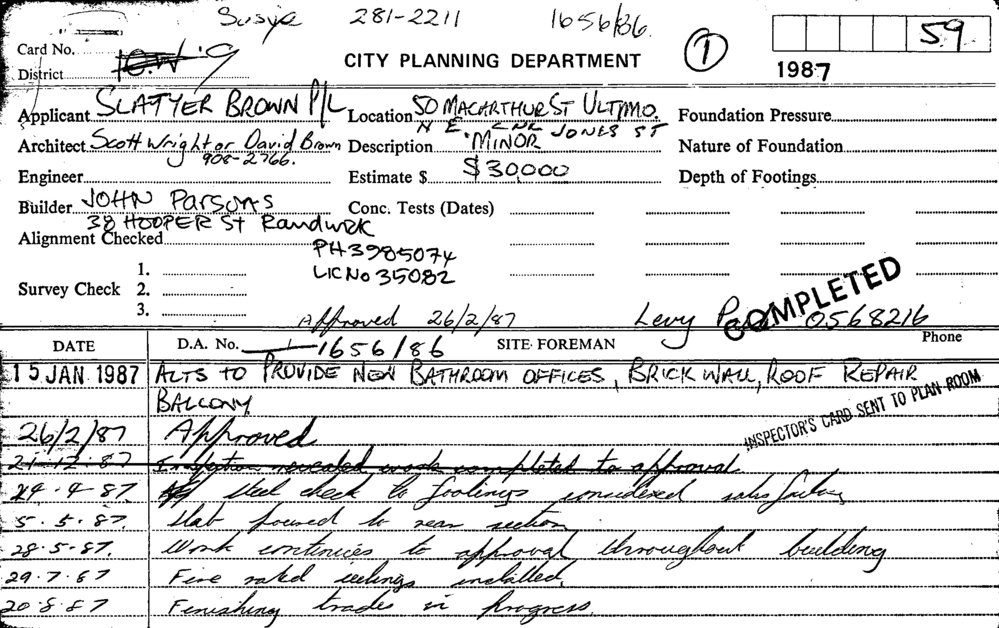 Susye 281-2211 1656/86.
Card No.
59
1
CITY PLANNING DEPARTMENT
District
1987
Applicant SLATYER BROWN P/L Location 50 MACARTHUR ST ULTIMO. Foundation Pressure
N E. CNR JONES ST
Architect Scott Wright or David Brown Description MINOR Nature of Foundation
908-2766.
Engineer Estimate $ $30000 Depth of Footings
Builder JOHN PARSONS Conc. Tests (Dates)
38 HOOPER ST Randwick
Alignment Checked
PH 3985074
1.
LIC No 35082
Survey Check 2.
COMPLETED
3.
Approved 26/2/87 Levy Paid 0568216
DATE D.A. No. 1656/86 SITE FOREMAN Phone
15 JAN 1987 ALTS TO PROVIDE NEW BATHROOM OFFICES, BRICK WALL, ROOF REPAIR
BALCONY
INSPECTOR'S CARD SENT TO PLAN ROOM
26/2/87 Approved
21-12-87 Inspection revealed work completed to approval
24-4-87 steel check to footings considered satisfactory
5.5.87. slab poured to rear section
28.5.87. Work continues to approval throughout building
29.7.87 Fire rated ceilings installed.
20.8.87 Finishing trades in progress.